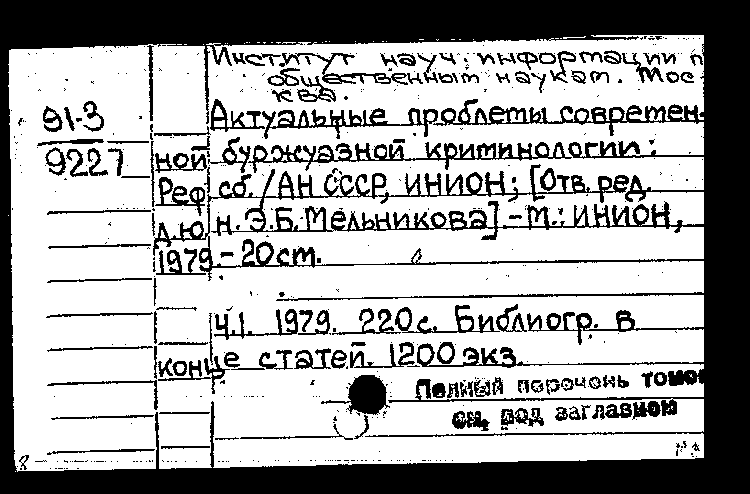 Институт науч. информации п
общественным наукам. Мос-
ква.
91-3
9227
Актуальные проблемы современ-
ной буржуазной криминологии:
Реф. сб. / АН СССР, ИНИОН; [Отв. ред.
д.ю.н. Э.Б. Мельникова]. - М.: ИНИОН,
1979 - 20 см.
Ч.1. 1979. 220 с. Библиогр. в
конце статей. 1200 экз.
Полный перечень томов
см. под заглавием